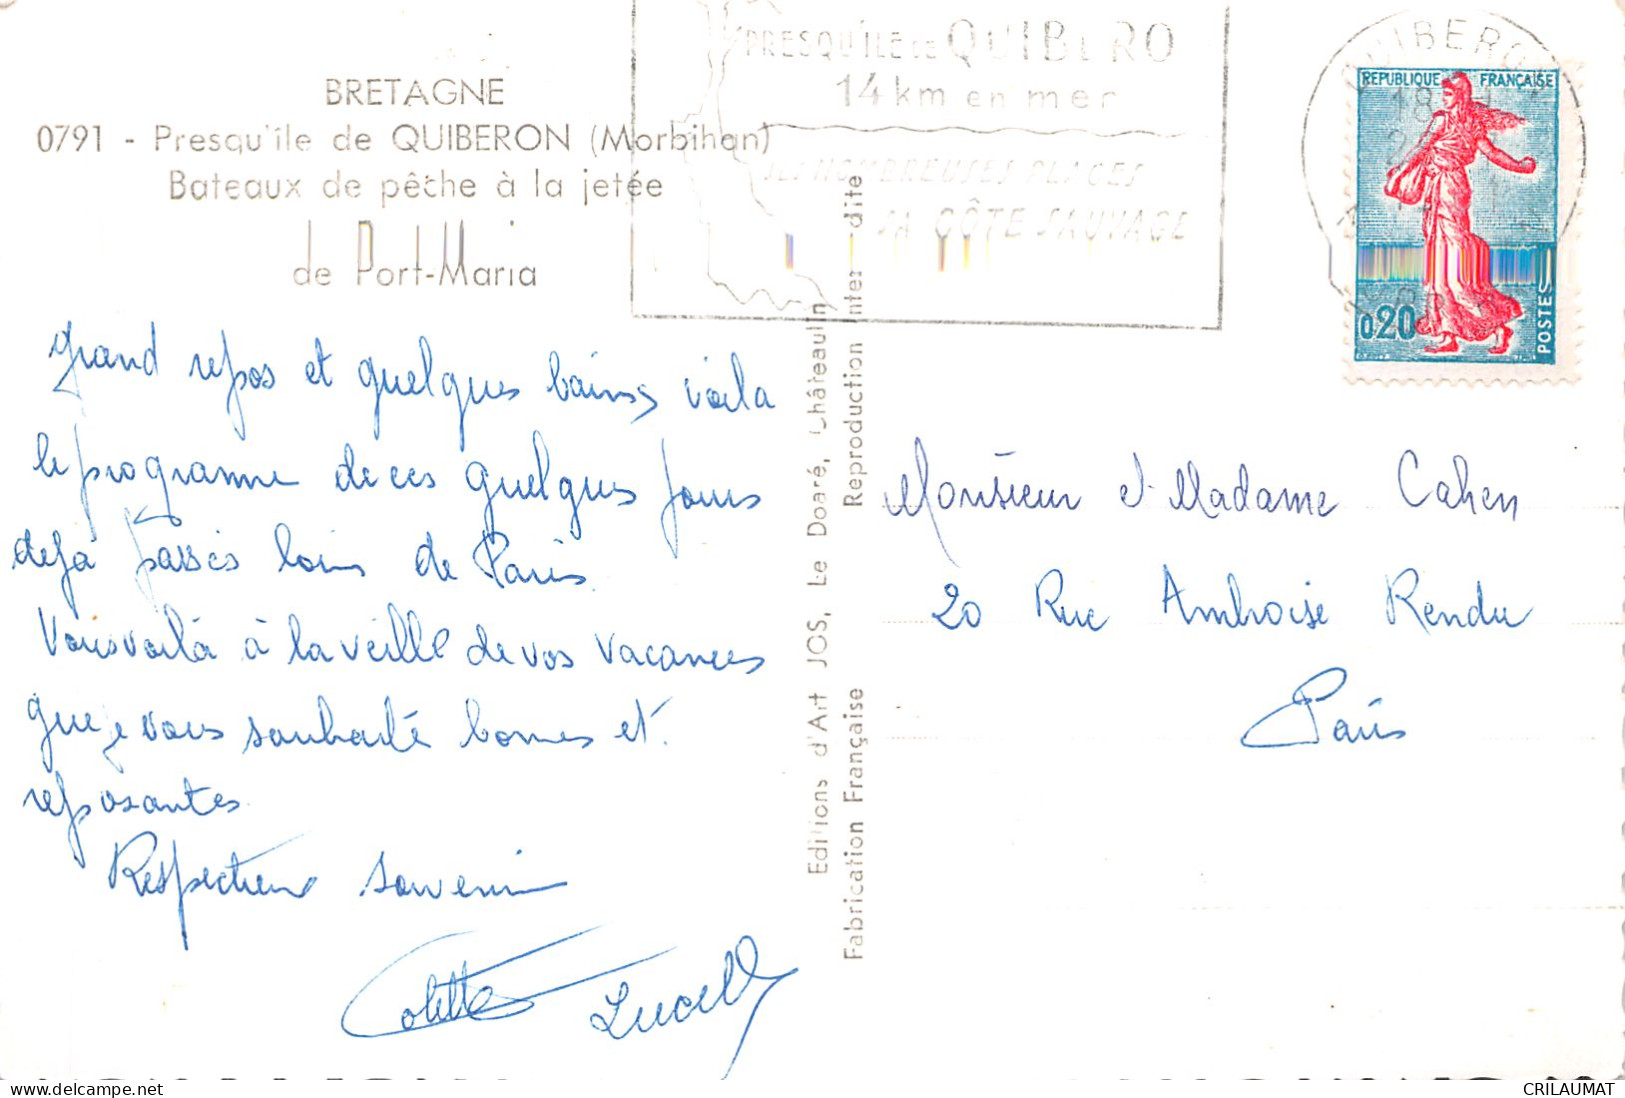 BRETAGNE
0791 - Presqu'île de QUIBERON (Morbihan)
Bateaux de pêche à la jetée
de Port-Maria
PRESQU'ÎLE DE QUIBERO
14 km en mer
SES NOMBREUSES PLAGES
SA CÔTE SAUVAGE
QUIBERO
REPUBLIQUE FRANÇAISE
0,20
POSTES
Grand repos et quelques bains, voila
le programme de ces quelques jours
dejà passés loin de Paris.
Vous voilà à la veille de vos vacances
que je vous souhaite bonnes et
reposantes.
Respectueux souvenir
Colette Lucell
Editions d'Art JOS, Le Doaré, Châteaulin
Fabrication Française Reproduction interdite
Monsieur et Madame Cahen
20 Rue Ambroise Rendu
Paris
CRILAUMAT